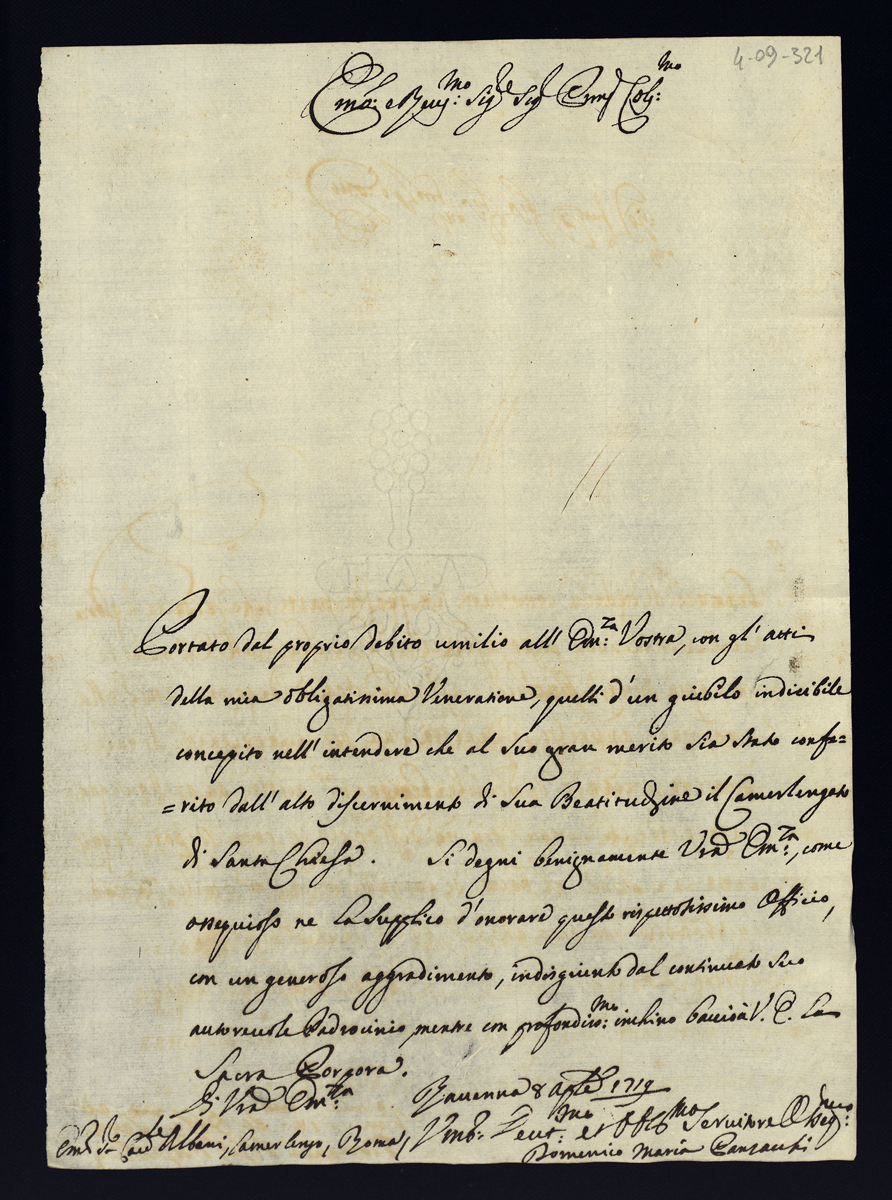 4-09-321
Em.mo e Rev.mo Sig.re Sig.r Pron. Col.mo
Portato dal proprio debito umilio all' Em:za Vostra, con gl' atti
della mia obligatissima Veneratione, quelli d'un giubilo indicibile
concepito nell' intendere che al suo gran merito sia stato confe=
=rito dall' alto discernimento di Sua Beatitudine il Camerlengato
di Santa Chiesa. Si degni benignamente V'ra Em:za, come
ossequioso ne La supplico d'onorare questo rispettosissimo Officio,
con un generoso aggradimento, indi seguito dal continuato suo
autorevole Padrocinio, mentre con profondiss:mo inchino baccio à V. E. La
Sacra Porpora.
Di V'ra Em:za Ravenna 8 Aple 1719
Em. S.r Card.le Albani, Camerlengo, Roma, Umo: Devot:mo et Obblig:mo Servitore Osseq:mo
Domenico Maria